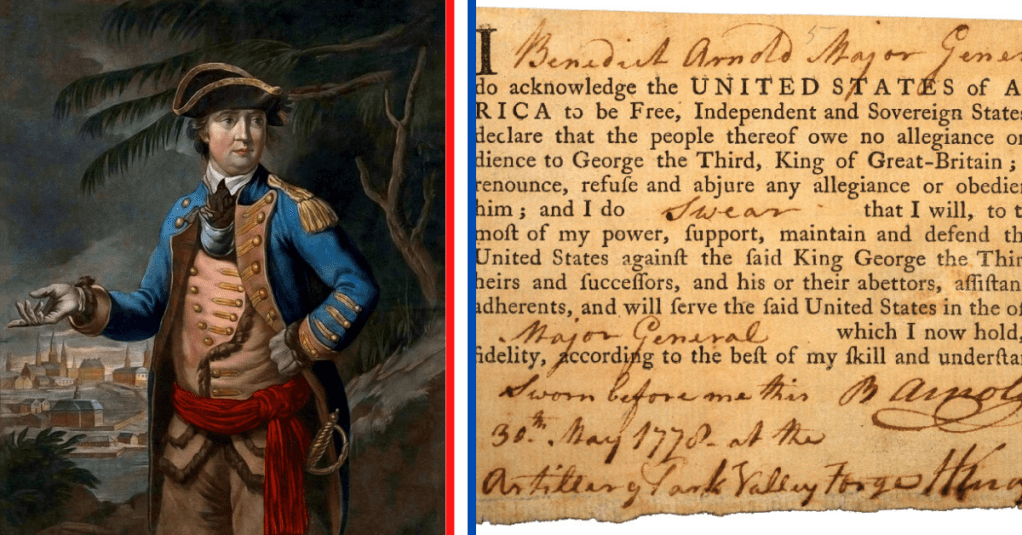 I Benedict Arnold Major Gener
do acknowledge the UNITED STATES of A
RICA to be Free, Independent and Sovereign States
declare that the people thereof owe no allegiance or
dience to George the Third, King of Great-Britain ;
renounce, refuſe and abjure any allegiance or obedie
him ; and I do Swear that I will, to t
moſt of my power, ſupport, maintain and defend th
United States againſt the ſaid King George the Thir
heirs and ſucceſſors, and his or their abettors, aſſiſtan
adherents, and will ſerve the ſaid United States in the of
Major General which I now hold,
fidelity, according to the beſt of my ſkill and underſta
Sworn before me this B Arnold
30th May 1778 at the
Artillery Park Valley Forge HKno